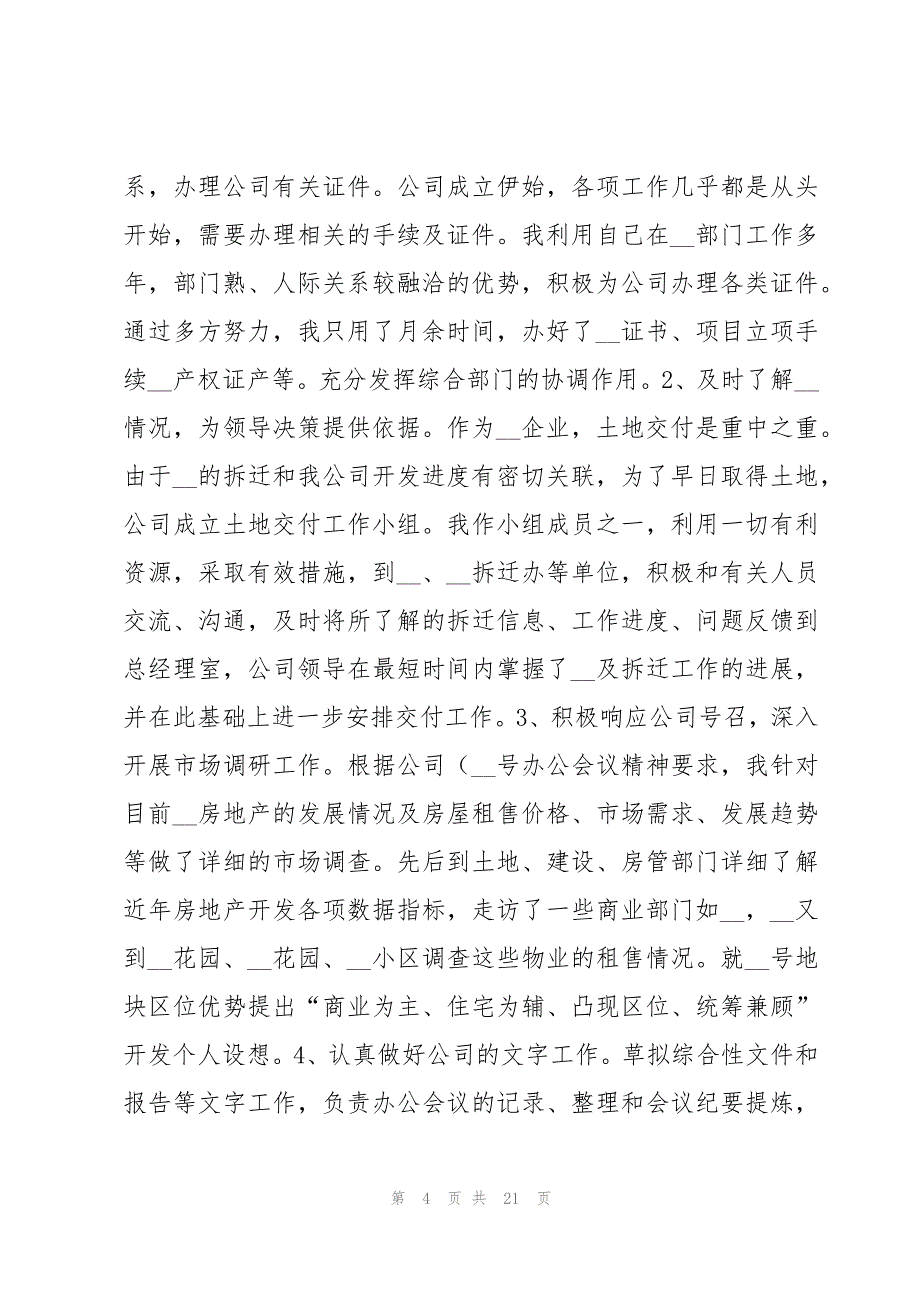 系，办理公司有关证件。公司成立伊始，各项工作几乎都是从头
开始，需要办理相关的手续及证件。我利用自己在__部门工作多
年，部门熟、人际关系较融洽的优势，积极为公司办理各类证件。
通过多方努力，我只用了月余时间，办好了__证书、项目立项手
续__产权证产等。充分发挥综合部门的协调作用。2、及时了解__
情况，为领导决策提供依据。作为__企业，土地交付是重中之重。
由于__的拆迁和我公司开发进度有密切关联，为了早日取得土地，
公司成立土地交付工作小组。我作小组成员之一，利用一切有利
资源，采取有效措施，到__、__拆迁办等单位，积极和有关人员
交流、沟通，及时将所了解的拆迁信息、工作进度、问题反馈到
总经理室，公司领导在最短时间内掌握了__及拆迁工作的进展，
并在此基础上进一步安排交付工作。3、积极响应公司号召，深入
开展市场调研工作。根据公司（__号办公会议精神要求，我针对
目前__房地产的发展情况及房屋租售价格、市场需求、发展趋势
等做了详细的市场调查。先后到土地、建设、房管部门详细了解
近年房地产开发各项数据指标，走访了一些商业部门如__，__又
到__花园、__花园、__小区调查这些物业的租售情况。就__号地
块区位优势提出“商业为主、住宅为辅、凸现区位、统筹兼顾”
开发个人设想。4、认真做好公司的文字工作。草拟综合性文件和
报告等文字工作，负责办公会议的记录、整理和会议纪要提炼，
第 4 页 共 21 页